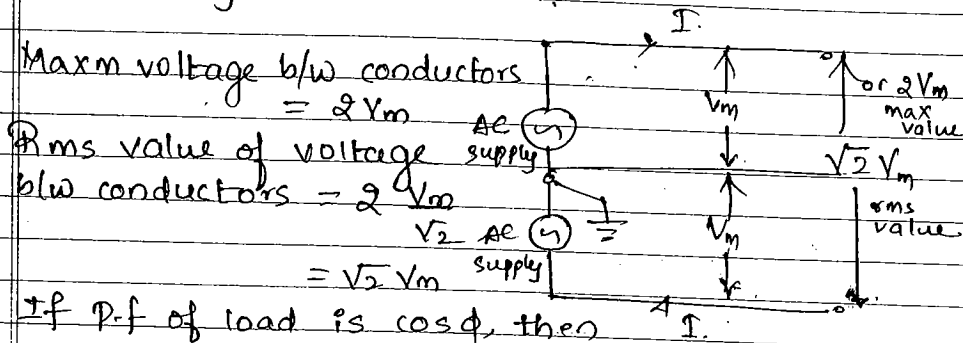 I.
Maxm voltage b/w conductors
= 2Vm
Rms value of voltage
b/w conductors = 2 Vm
√2
= √2 Vm
If P.f of load is cosφ, then
AC
supply
AC
supply
Vm
Vm
or 2Vm
max
value
√2 Vm
rms
value
I.